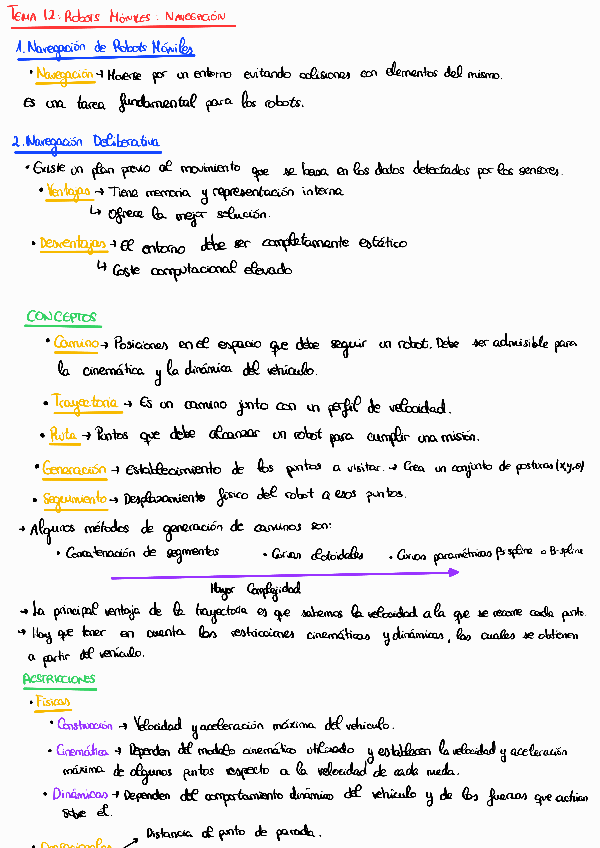 TEMA 12: ROBOTS MÓVILES: NAVEGACIÓN
1. Navegación de Robots Móviles
• Navegación → Moverse por un entorno evitando colisiones con elementos del mismo.
Es una tarea fundamental para los robots.
2. Navegación Deliberativa
• Existe un plan previo al movimiento que se basa en los datos detectados por los sensores.
• Ventajas → Tiene memoria y representación interna
↳ Ofrece la mejor solución.
• Desventajas → El entorno debe ser completamente estático
↳ Coste computacional elevado
CONCEPTOS
• Camino → Posiciones en el espacio que debe seguir un robot. Debe ser admisible para
la cinemática y la dinámica del vehículo.
• Trayectoria → Es un camino junto con un perfil de velocidad.
• Ruta → Puntos que debe alcanzar un robot para cumplir una misión.
• Generación → Establecimiento de los puntos a visitar. → Crea un conjunto de posturas (x,y,θ)
• Seguimiento → Desplazamiento físico del robot a esos puntos.
→ Algunos métodos de generación de caminos son:
• Concatenación de segmentos • Curvas cloloidales • Curvas paramétricas β spline o B-spline
Mayor Complejidad
→ La principal ventaja de la trayectoria es que sabemos la velocidad a la que se recorre cada punto.
→ Hay que tener en cuenta las restricciones cinemáticas y dinámicas, las cuales se obtienen
a partir del vehículo.
RESTRICCIONES
• Físicas
• Construcción → Velocidad y aceleración máxima del vehículo.
• Cinemática → Dependen del modelo cinemático utilizado y establecen la velocidad y aceleración
máxima de algunos puntos respecto a la velocidad de cada rueda.
• Dinámicas → Dependen del comportamiento dinámico del vehículo y de las fuerzas que actúan
sobre él.
Distancia al punto de parada.
• Operacionales